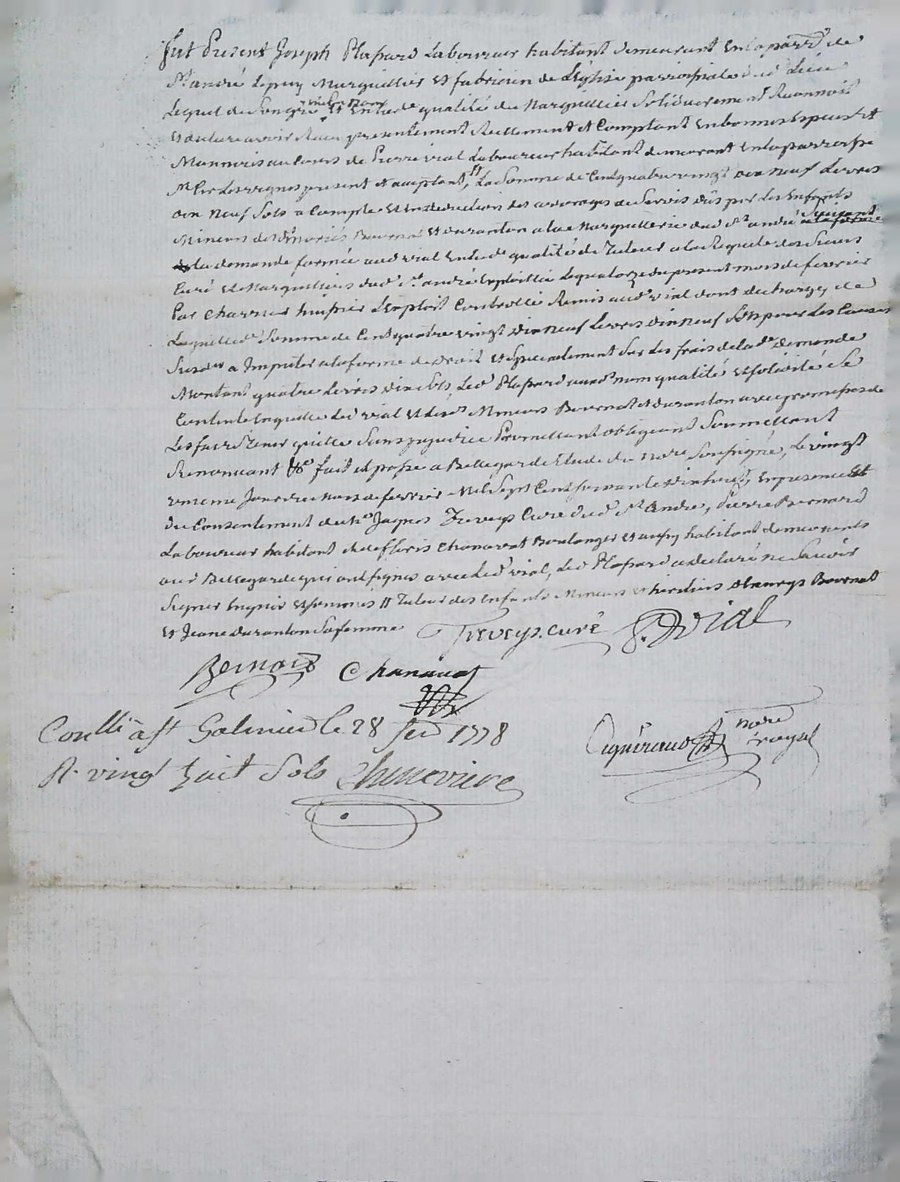 fut Present Joseph Plapard Laboureur habitant demeurant En la parr.e de
St. andré Lepuy Marguillier Et fabricien de L'Eglise parroissiale dud. Lieu
Lequel de Son gré Et En lad. qualité de Marguillier Solidairement Reconnoit
Et declare avoir Recu presentement Reellement Et Comptant En bonnes Especes Et
Monnoies au Cours de Pierre vial Laboureur habitant demeurant En la parroisse
present Et acceptant, La Somme de Cent quatre vingt dix neuf Livres
dix neuf Sols a Compte Et En deduction des arrerages de Servis dûs par les Enfants
Mineurs de Bournat Et duranton a la Marguillerie dud. St. andré Suivant
la demande formée aud. vial En lad. qualité de Tuteur a la Requete des Sieurs
Curé Et Marguilliers dud. St. andré Exploittée Le quatorze du present mois de fevrier
Par Charvier huissier L'Exploit Controllé Remis aud. vial dont decharge, de
Laquelle Somme de Cent quatre vingt dix neuf Livres dix neuf Sols pour Les Causes
Susd. a Imputer a la forme de Droit Et Specialement Sur Les frais de lad. demande
Montant quatre Livres dix Sols Led. Plapard aud. nom qualité Et Solidité Se
Contente En quitte Led. vial Et Mineurs Bournat Et duranton avec promesse de
Les faire Tenir quitte Sans prejudice Promettant obligeant Soumettant
Renonçant &c. fait Et passé a Bellegarde Etude du no.re Soussigné, Le vingt
Jour du Mois de fevrier Mil Sept Cent Soixante dix huit, En presence Et
du Consentement de Jaques Treveys Curé dud. St. André, Pierre Bernard
Laboureur habitant Chanavat Boulanger Et habitant demeurants
aud. Bellegarde qui ont Signé avec Led. vial, Led. Plapard a declaré ne Savoir
Signer Enquis Et Sommes // Tuteur des Enfants Mineurs Et heritiers Bournat
Et Jeane duranton Sa femme
Treveys. curé P. Vial
Bernard Chanavat
Conllé à st Galmier le 28 fev 1778
R. vingt huit Sols Chenevière
no.re
royal